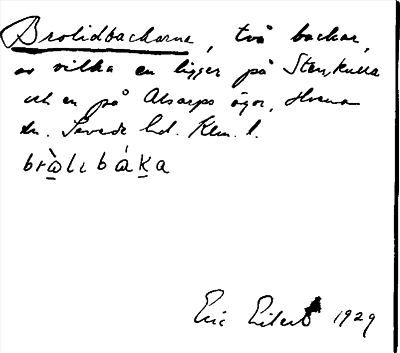 Brolidbackarna, två backar,
av vilka en ligger på Stenkulla
och en på Alsarps ägor, Hvena
sn. Sevede hd. Klm. l.
brὼlıbάḵa
Eric Eilert 1929